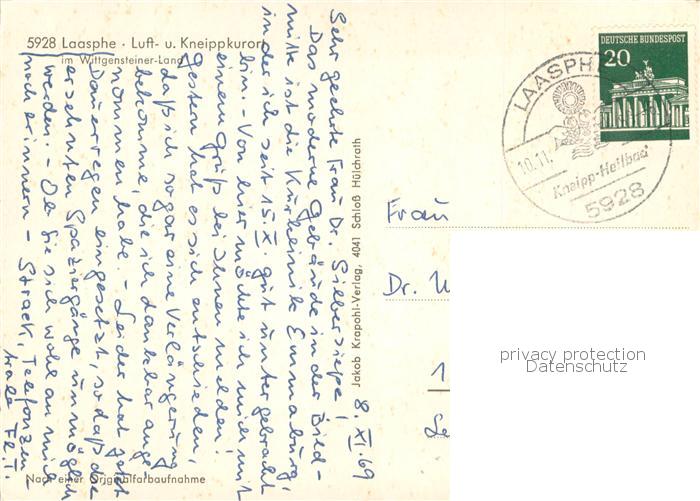 5928 Laasphe · Luft- u. Kneippkurort
im Wittgensteiner-Land
8. XI. 69
Sehr geehrte Frau Dr. Silbersiepe!
Das moderne Gebäude in der Bild-
mitte ist die Kurklinik Emmaburg,
in der ich seit 15.X. gut untergebracht
bin. - Von hier möchte ich mich mit
einem Gruß bei Ihnen melden.
Gestern hat es sich entschieden,
daß ich sogar eine Verlängerung
bekomme, die ich dankbar ange-
nommen habe. - Leider hat jetzt
Dauerregen eingesetzt, sodaß die
ersehnten Spaziergänge unmöglich
werden. - Ob Sie sich wohl an mich
noch erinnern - Strack, Telefonzen-
trale Fr. I.
Nach einer Originalfarbaufnahme
Jakob Krapohl-Verlag, 4041 Schloß Hülchrath
DEUTSCHE BUNDESPOST
20
LAASPHE
10.11.
Kneipp-Heilbad
5928
Frau
Dr.
1
privacy protection
Datenschutz